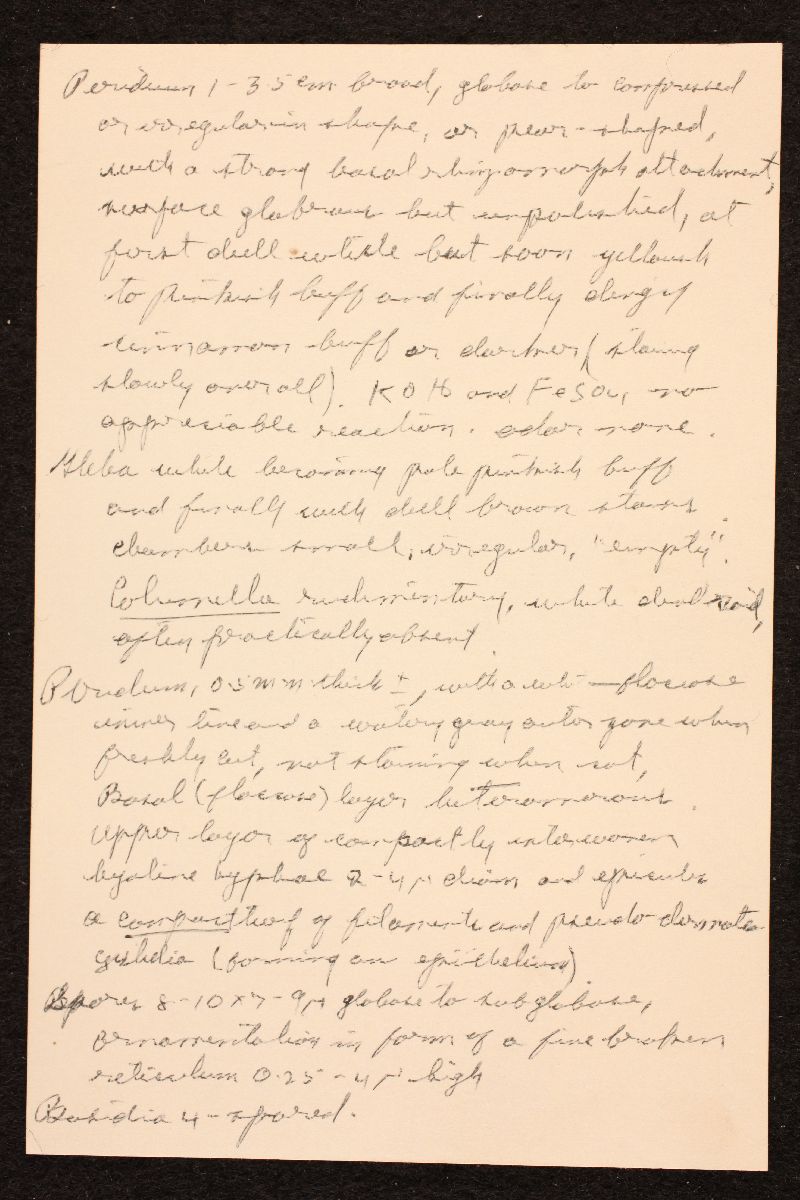 Peridium 1-3.5 cm broad, globose to compressed
or irregular in shape, or pear-shaped,
with a strong basal rhizomorph attachment,
surface glabrous but unpolished, at
first dull white but soon yellowish
to pinkish buff and finally dingy
cinnamon buff or darker (staining
slowly overall). KOH and FeSO4, no
appreciable reaction. odor none.
Gleba white becoming pale pinkish buff
and finally with dull brown stains.
chambers small, irregular, "empty".
Columella rudimentary, white
often practically absent.
Peridium, 0.5 mm thick ±, with a floccose
inner line and a watery gray outer zone when
freshly cut, not staining when cut,
Basal (floccose) layer heteromerous.
Upper layer of compactly interwoven
hyaline hyphae 2-4µ diam and epicutis
a compact turf of filaments and pseudo-dermato
cystidia (forming an epithelium).
Spores 8-10 x 7-9µ globose to subglobose,
ornamentation in form of a fine broken
reticulum 0.25-4µ high
Basidia 4-spored.